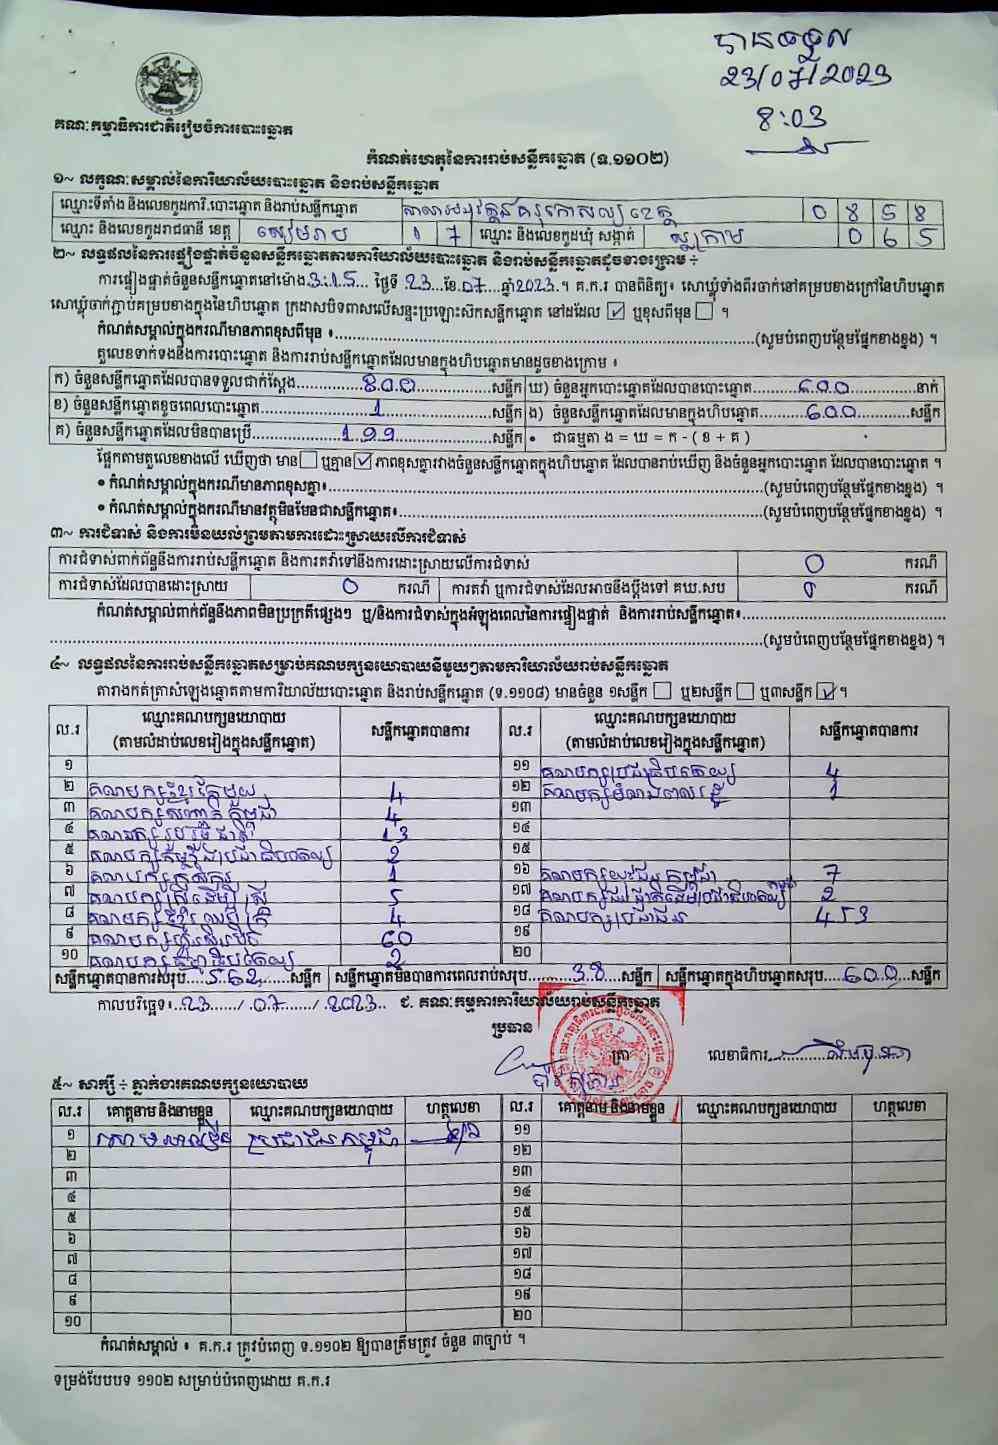 បានទទួល
23/07/2023
8:03
គណៈកម្មាធិការជាតិរៀបចំការបោះឆ្នោត
កំណត់ហេតុនៃការរាប់សន្លឹកឆ្នោត (ទ.១១០២)
១~ លក្ខណៈសម្គាល់នៃការិយាល័យបោះឆ្នោត និងរាប់សន្លឹកឆ្នោត
ឈ្មោះទីតាំង និងលេខកូដការិ.បោះឆ្នោត និងរាប់សន្លឹកឆ្នោត 0 8 5 8
ឈ្មោះ និងលេខកូដរាជធានី ខេត្ត សៀមរាប 1 7 ឈ្មោះ និងលេខកូដឃុំ សង្កាត់ ស្លក្រាម 0 6 5
២~ លទ្ធផលនៃការផ្ទៀងផ្ទាត់ចំនួនសន្លឹកឆ្នោតតាមការិយាល័យបោះឆ្នោត និងរាប់សន្លឹកឆ្នោតដូចខាងក្រោម ÷
ការផ្ទៀងផ្ទាត់ចំនួនសន្លឹកឆ្នោតនៅម៉ោង 3:15 ថ្ងៃទី 23 ខែ 07 ឆ្នាំ 2023 ។ គ.ក.រ បានពិនិត្យ៖ សោឃ្លុំទាំងពីរចាក់នៅគម្របខាងក្រៅនៃហិបឆ្នោត
សោឃ្លុំចាក់ភ្ជាប់គម្របខាងក្នុងនៃហិបឆ្នោត ក្រដាសបិទពាសលើសន្ទះប្រឡោះស៊កសន្លឹកឆ្នោត នៅដដែល ☑ ឬខុសពីមុន ☐ ។
កំណត់សម្គាល់ក្នុងករណីមានភាពខុសពីមុន ៖ (សូមបំពេញបន្ថែមផ្នែកខាងខ្នង) ។
តួលេខទាក់ទងនឹងការបោះឆ្នោត និងការរាប់សន្លឹកឆ្នោតដែលមានក្នុងហិបឆ្នោតមានដូចខាងក្រោម ៖
ក) ចំនួនសន្លឹកឆ្នោតដែលបានទទួលជាក់ស្តែង 800 សន្លឹក ឃ) ចំនួនអ្នកបោះឆ្នោតដែលបានបោះឆ្នោត 600 នាក់
ខ) ចំនួនសន្លឹកឆ្នោតខូចពេលបោះឆ្នោត 1 សន្លឹក ង) ចំនួនសន្លឹកឆ្នោតដែលមានក្នុងហិបឆ្នោត 600 សន្លឹក
គ) ចំនួនសន្លឹកឆ្នោតដែលមិនបានប្រើ 199 សន្លឹក • ជាធម្មតា ង = ឃ = ក - ( ខ + គ )
ផ្អែកតាមតួលេខខាងលើ ឃើញថា មាន ☐ ឬគ្មាន ☑ ភាពខុសគ្នារវាងចំនួនសន្លឹកឆ្នោតក្នុងហិបឆ្នោត ដែលបានរាប់ឃើញ និងចំនួនអ្នកបោះឆ្នោត ដែលបានបោះឆ្នោត ។
• កំណត់សម្គាល់ក្នុងករណីមានភាពខុសគ្នា៖ (សូមបំពេញបន្ថែមផ្នែកខាងខ្នង) ។
• កំណត់សម្គាល់ក្នុងករណីមានវត្ថុមិនមែនជាសន្លឹកឆ្នោត៖ (សូមបំពេញបន្ថែមផ្នែកខាងខ្នង) ។
៣~ ការជំទាស់ និងការមិនយល់ព្រមតាមការដោះស្រាយលើការជំទាស់
ការជំទាស់ពាក់ព័ន្ធនឹងការរាប់សន្លឹកឆ្នោត និងការតវ៉ាទៅនឹងការដោះស្រាយលើការជំទាស់ 0 ករណី
ការជំទាស់ដែលបានដោះស្រាយ 0 ករណី ការតវ៉ា ឬការជំទាស់ដែលអាចនឹងប្តឹងទៅ គឃ.សប 0 ករណី
កំណត់សម្គាល់ពាក់ព័ន្ធនឹងភាពមិនប្រក្រតីផ្សេងៗ ឬ/និងការជំទាស់ក្នុងអំឡុងពេលនៃការផ្ទៀងផ្ទាត់ និងការរាប់សន្លឹកឆ្នោត៖
(សូមបំពេញបន្ថែមផ្នែកខាងខ្នង) ។
៤~ លទ្ធផលនៃការរាប់សន្លឹកឆ្នោតសម្រាប់គណបក្សនយោបាយនីមួយៗតាមការិយាល័យរាប់សន្លឹកឆ្នោត
តារាងកត់ត្រាសំឡេងឆ្នោតតាមការិយាល័យបោះឆ្នោត និងរាប់សន្លឹកឆ្នោត (ទ.១១០៨) មានចំនួន ១សន្លឹក ☐ ឬ២សន្លឹក ☐ ឬ៣សន្លឹក ☑ ។
ល.រ ឈ្មោះគណបក្សនយោបាយ (តាមលំដាប់លេខរៀងក្នុងសន្លឹកឆ្នោត) សន្លឹកឆ្នោតបានការ ល.រ ឈ្មោះគណបក្សនយោបាយ (តាមលំដាប់លេខរៀងក្នុងសន្លឹកឆ្នោត) សន្លឹកឆ្នោតបានការ
១ ១១ គណបក្សប្រជាធិបតេយ្យ 4
២ គណបក្សខ្មែរតែមួយ 4 ១២ គណបក្សកម្លាំងពលរដ្ឋ 1
៣ 4 ១៣
៤ 13 ១៤
៥ គណបក្សកម្ពុជាប្រជាធិបតេយ្យ 2 ១៥
៦ គណបក្សកសិករ 1 ១៦ គណបក្សយុវជនកម្ពុជា 7
៧ គណបក្សស្ត្រីដើម្បីស្ត្រី 5 ១៧ 2
៨ 4 ១៨ គណបក្សប្រជាជន 453
៩ គណបក្សហ៊្វុនស៊ិនប៉ិច 60 ១៩
១០ 2 ២០
សន្លឹកឆ្នោតបានការសរុប 562 សន្លឹក សន្លឹកឆ្នោតមិនបានការពេលរាប់សរុប 38 សន្លឹក សន្លឹកឆ្នោតក្នុងហិបឆ្នោតសរុប 600 សន្លឹក
កាលបរិច្ឆេទ៖ 23 / 07 / 2023 ជ. គណៈកម្មការការិយាល័យរាប់សន្លឹកឆ្នោត
ប្រធាន
ត្រា លេខាធិការ
៥~ សាក្សី ÷ ភ្នាក់ងារគណបក្សនយោបាយ
ល.រ គោត្តនាម និងនាមខ្លួន ឈ្មោះគណបក្សនយោបាយ ហត្ថលេខា ល.រ គោត្តនាម និងនាមខ្លួន ឈ្មោះគណបក្សនយោបាយ ហត្ថលេខា
១ ប្រជាជនកម្ពុជា ១១
២ ១២
៣ ១៣
៤ ១៤
៥ ១៥
៦ ១៦
៧ ១៧
៨ ១៨
៩ ១៩
១០ ២០
កំណត់សម្គាល់ ៖ គ.ក.រ ត្រូវបំពេញ ទ.១១០២ ឱ្យបានត្រឹមត្រូវ ចំនួន ៣ច្បាប់ ។
ទម្រង់បែបបទ ១១០២ សម្រាប់បំពេញដោយ គ.ក.រ